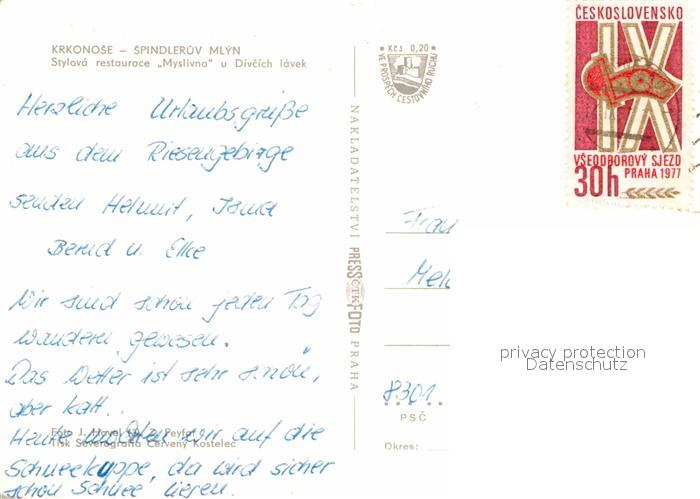 KRKONOŠE – ŠPINDLERŮV MLÝN
Stylová restaurace „Myslivna" u Dívčích lávek
Herzliche Urlaubsgrüße
aus dem Riesengebirge
senden Helmut, Isma
Bernd u. Elke
Wir sind schon jeden Tag
wandern gewesen.
Das Wetter ist sehr schön,
aber kalt.
Heute wir auf die
Schneekuppe, da wird sicher
schon Schnee liegen.
Foto J. Havel
Tisk Severografia Červený Kostelec
NAKLADATELSTVÍ PRESSFOTO PRAHA
ČTK
Kčs 0,20
VE PROSPĚCH CESTOVNÍHO RUCHU
ČESKOSLOVENSKO
IX
ROH
VŠEODBOROVÝ SJEZD
PRAHA 1977
30h
Frau
8301
PSČ
Okres:
privacy protection
Datenschutz